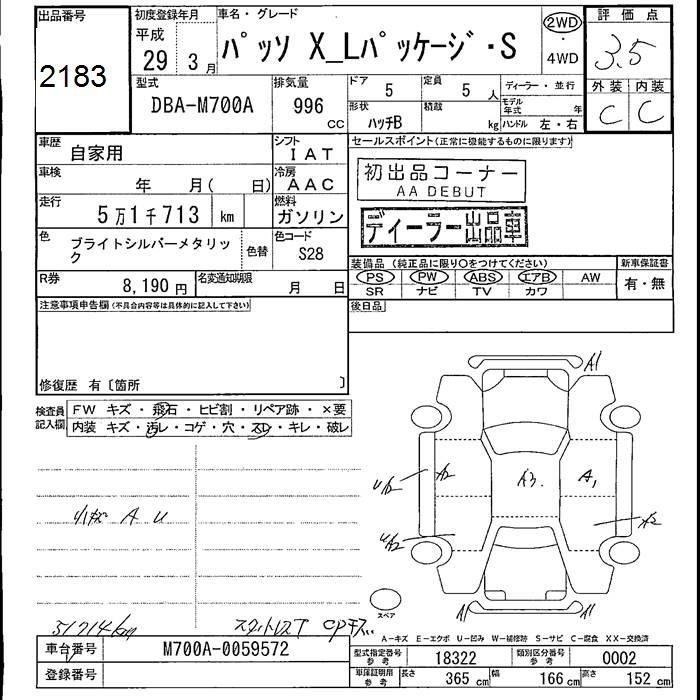 出品番号
2183
初度登録年月
平成
29年3月
車名・グレード
パッソ X_Lパッケージ・S
2WD
・
4WD
評価点
3.5
外装 内装
C C
型式
DBA-M700A
排気量
996
CC
ドア 5
定員 5人
ディーラー・並行
形状
ハッチB
積載
kg
モデル年式 年
ハンドル 左・右
車歴
自家用
シフト
IAT
車検
年 月( 日)
冷房
AAC
走行
5万1千713 km
燃料
ガソリン
色
ブライトシルバーメタリック
色替
色コード
S28
R券
8,190円
名変通知期限
月 日
セールスポイント(正常に機能するものに限ります)
初出品コーナー
AA DEBUT
ディーラー出品車
装備品 (純正品に限り○をつけてください)
新車保証書
PS PW ABS エアB AW
有・無
SR ナビ TV カワ
後日品
注意事項申告欄(不具合内容等は具体的に記入して下さい)
修復歴 有〔箇所 〕
検査員
記入欄
FW キズ・飛石・ヒビ割・リペア跡・×要
内装 キズ・汚レ・コゲ・穴・スレ・キレ・破レ
小キズ A U
A1
U A2
A3
A1
A2
U A2
A1
A1
スペア
51714km
A-キズ E-エクボ U-凹み W-補修跡 S-サビ C-腐食 XX-交換済
車台番号
M700A-0059572
登録番号
型式指定番号
参考
18322
類別区分番号
参考
0002
車庫証明用
参考
長さ 365 cm
幅 166 cm
高さ 152 cm